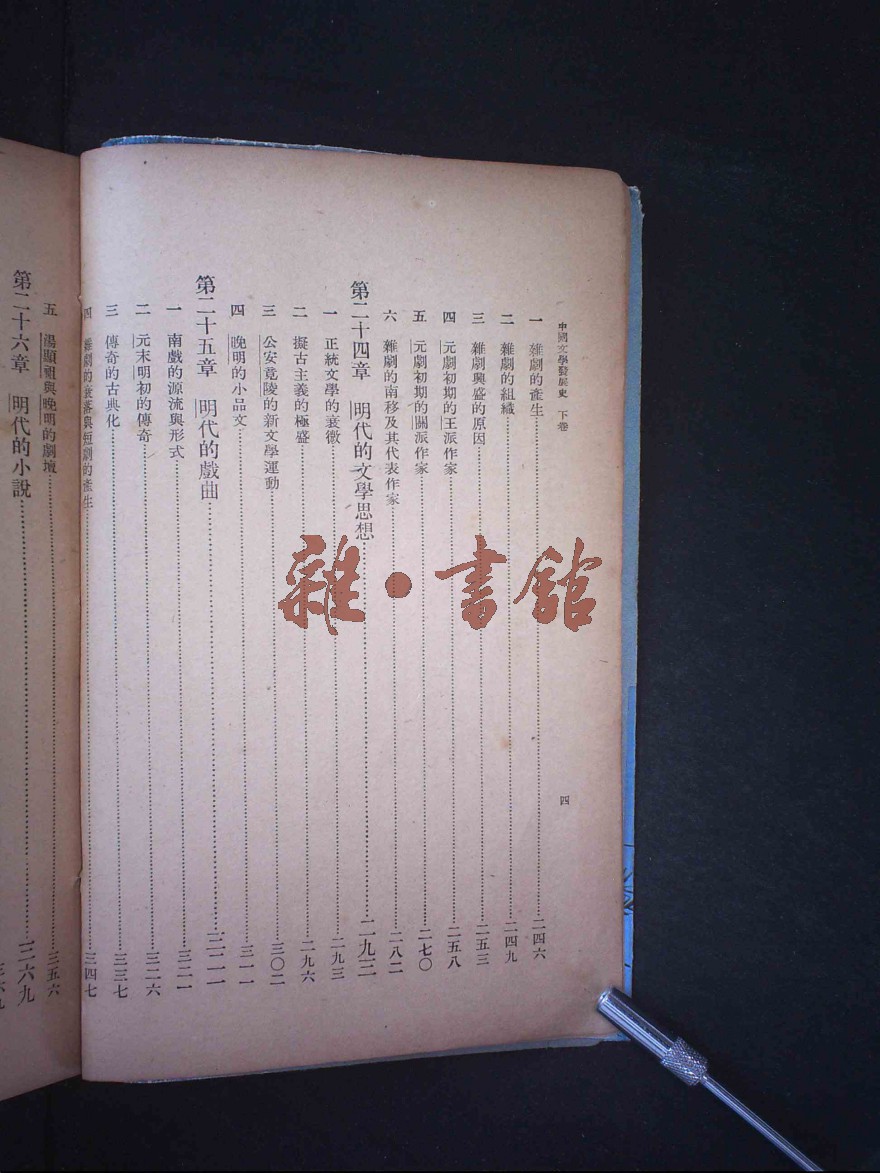 中國文學發展史 下卷
四
一 雜劇的產生……二四六
二 雜劇的組織……二四九
三 雜劇興盛的原因……二五三
四 元劇初期的王派作家……二五八
五 元劇初期的關派作家……二七〇
六 雜劇的南移及其代表作家……二八二
第二十四章 明代的文學思想……二九三
一 正統文學的衰微……二九三
二 擬古主義的極盛……二九六
三 公安竟陵的新文學運動……三〇二
四 晚明的小品文……三一一
第二十五章 明代的戲曲……三二一
一 南戲的源流與形式……三二一
二 元末明初的傳奇……三二六
三 傳奇的古典化……三三七
四 雜劇的衰落與短劇的產生……三四七
五 湯顯祖與晚明的劇壇……三五六
第二十六章 明代的小說……三六九
三六九
雜·書館